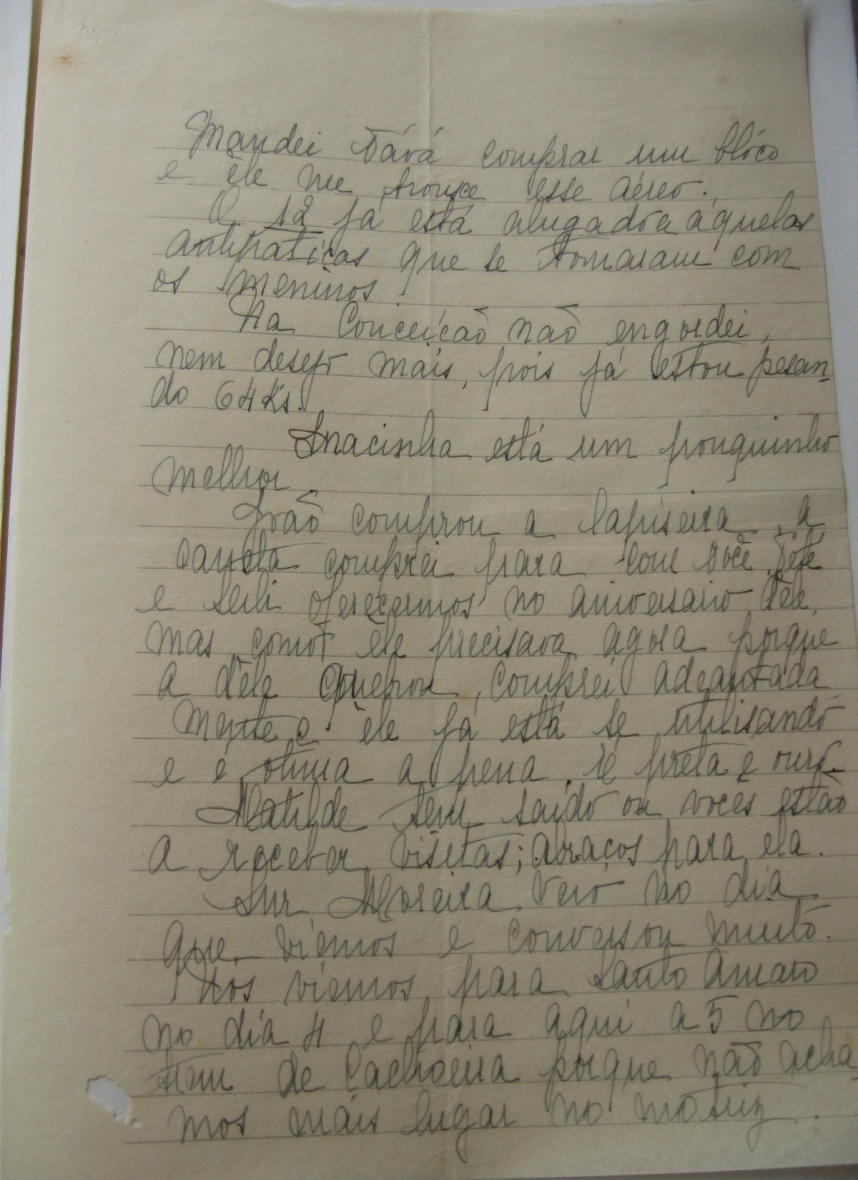 Mandei Vává comprar um blóco
e êle me trouxe esse aéreo.
O 12 já está alugado a aquelas
antipáticas que se tomaram com
os meninos.
Na Conceição não engordei,
nem desejo mais, pois já estou pesan-
do 64 Ks.
Inacinha está um pouquinho
melhor.
João comprou a lapiseira, a
caneta comprei para com você, Tété
e oferecermos no aniversario dêle,
mas como êle precisava agora porque
a dêle quebrou, comprei adeantada
mente e êle já está se utilisando
e é otima a pena, é preta e ouro.
Matilde tem saido ou vocês estão
a receber visitas; abraços para ela.
Snr Moreira veio no dia
que viemos e conversou muito.
Nós viemos para Santo Amaro
no dia 4 e para aqui a 5 no
trem de Cachoeira porque não acha
mos mais lugar no motriz.